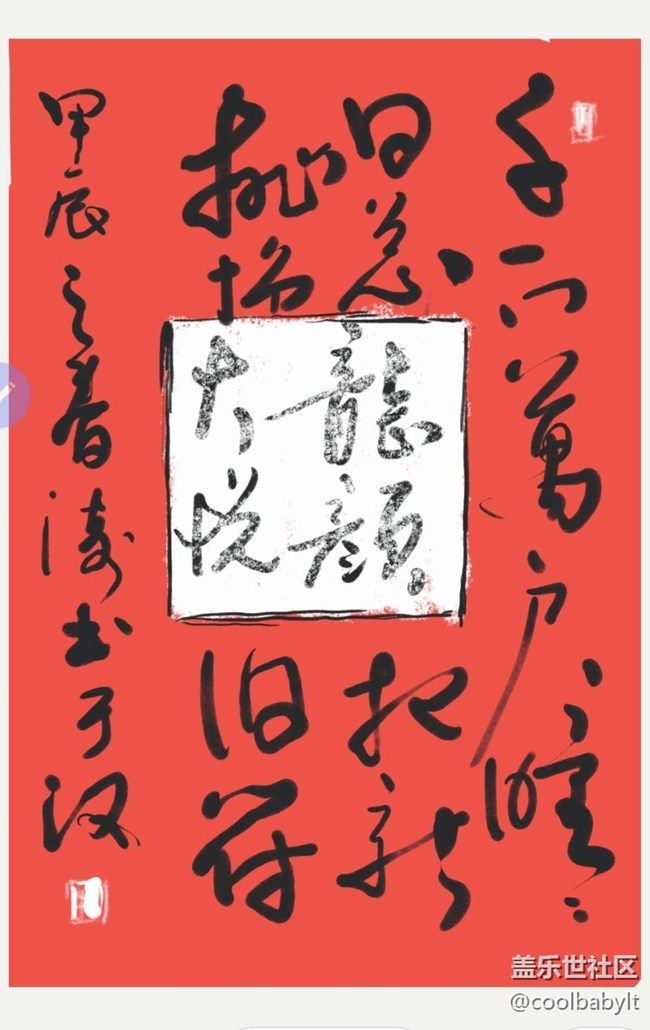 千门萬户曈曈
日总把新
桃换旧符
龍顔
大悦
甲辰之春涛书于汉
盖乐世社区
@coolbabylt